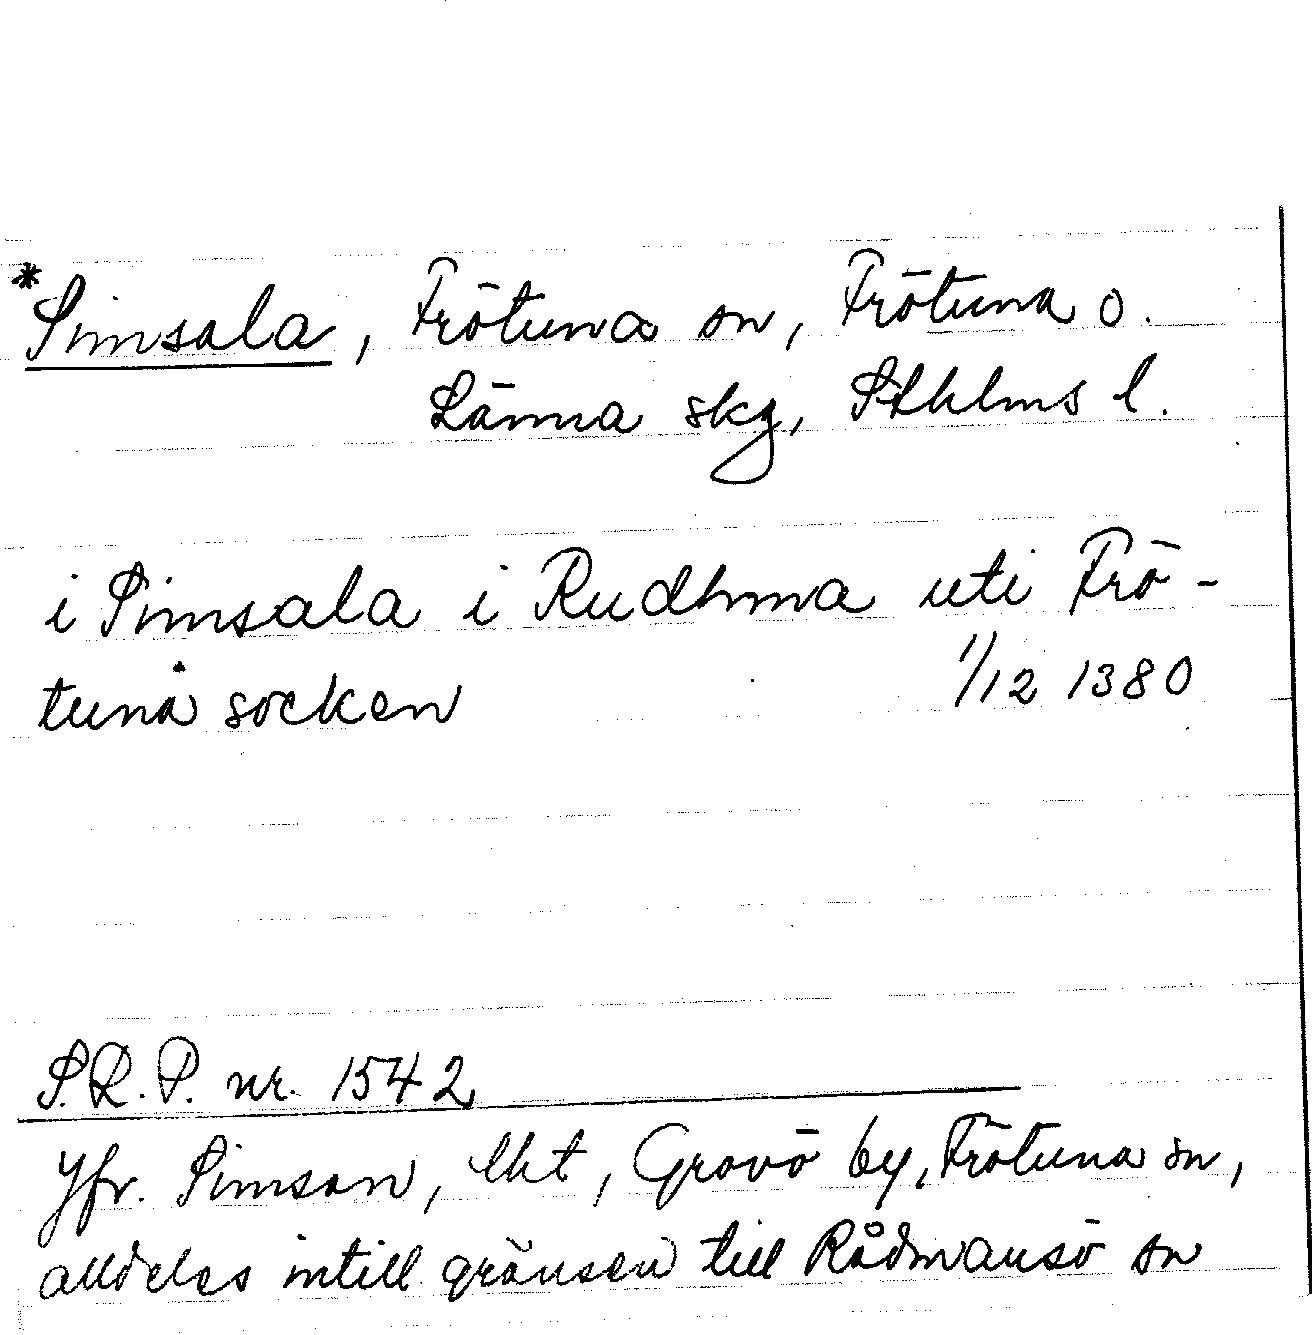 *Simsala, Frötuna sn, Frötuna o.
Länna skg, Sthlms l.
i Simsala i Rudhma uti Frö-
tuna socken 1/12 1380
S.R.P. nr. 1542
Jfr. Simson, lht, Gravö by, Frötuna sn,
alldeles intill gränsen till Rådmansö sn